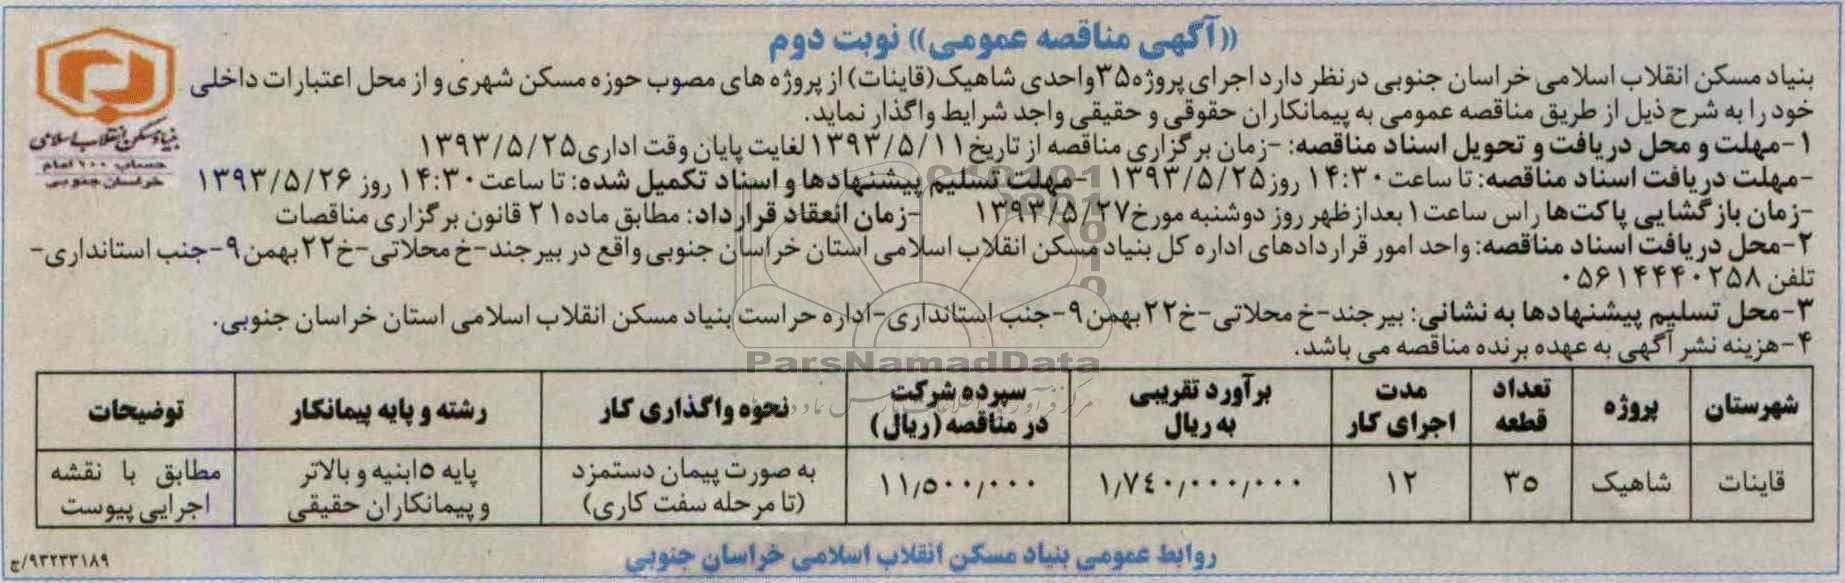 «آگهی مناقصه عمومی» نوبت دوم
بنیاد مسکن انقلاب اسلامی خراسان جنوبی در نظر دارد اجرای پروژه ۳۵ واحدی شاهیک (قاینات) از پروژه های مصوب حوزه مسکن شهری و از محل اعتبارات داخلی
خود را به شرح ذیل از طریق مناقصه عمومی به پیمانکاران حقوقی و حقیقی واجد شرایط واگذار نماید.
۱-مهلت و محل دریافت و تحویل اسناد مناقصه: -زمان برگزاری مناقصه از تاریخ ۱۳۹۳/۵/۱۱ لغایت پایان وقت اداری ۱۳۹۳/۵/۲۵
-مهلت دریافت اسناد مناقصه: تا ساعت ۱۴:۳۰ روز ۱۳۹۳/۵/۲۵ -مهلت تسلیم پیشنهادها و اسناد تکمیل شده: تا ساعت ۱۴:۳۰ روز ۱۳۹۳/۵/۲۶
-زمان بازگشایی پاکت‌ها راس ساعت ۱ بعدازظهر روز دوشنبه مورخ ۱۳۹۳/۵/۲۷ -زمان انعقاد قرارداد: مطابق ماده ۲۱ قانون برگزاری مناقصات
۲-محل دریافت اسناد مناقصه: واحد امور قراردادهای اداره کل بنیاد مسکن انقلاب اسلامی استان خراسان جنوبی واقع در بیرجند-خ محلاتی-خ ۲۲ بهمن ۹-جنب استانداری-
تلفن ۰۵۶۱۴۴۴۰۲۵۸
۳-محل تسلیم پیشنهادها به نشانی: بیرجند-خ محلاتی-خ ۲۲ بهمن ۹-جنب استانداری-اداره حراست بنیاد مسکن انقلاب اسلامی استان خراسان جنوبی.
۴-هزینه نشر آگهی به عهده برنده مناقصه می باشد.
شهرستان | پروژه | تعداد قطعه | مدت اجرای کار | برآورد تقریبی به ریال | سپرده شرکت در مناقصه (ریال) | نحوه واگذاری کار | رشته و پایه پیمانکار | توضیحات
قاینات | شاهیک | ۳۵ | ۱۲ | ۱/۷۴۰/۰۰۰/۰۰۰ | ۱۱/۵۰۰/۰۰۰ | به صورت پیمان دستمزد (تا مرحله سفت کاری) | پایه ۵ ابنیه و بالاتر و پیمانکاران حقیقی | مطابق با نقشه اجرایی پیوست
روابط عمومی بنیاد مسکن انقلاب اسلامی خراسان جنوبی
۹۳۲۳۳۱۸۹/ج
بنیاد مسکن انقلاب اسلامی
حساب ۱۰۰ امام
خراسان جنوبی
ParsNamadData